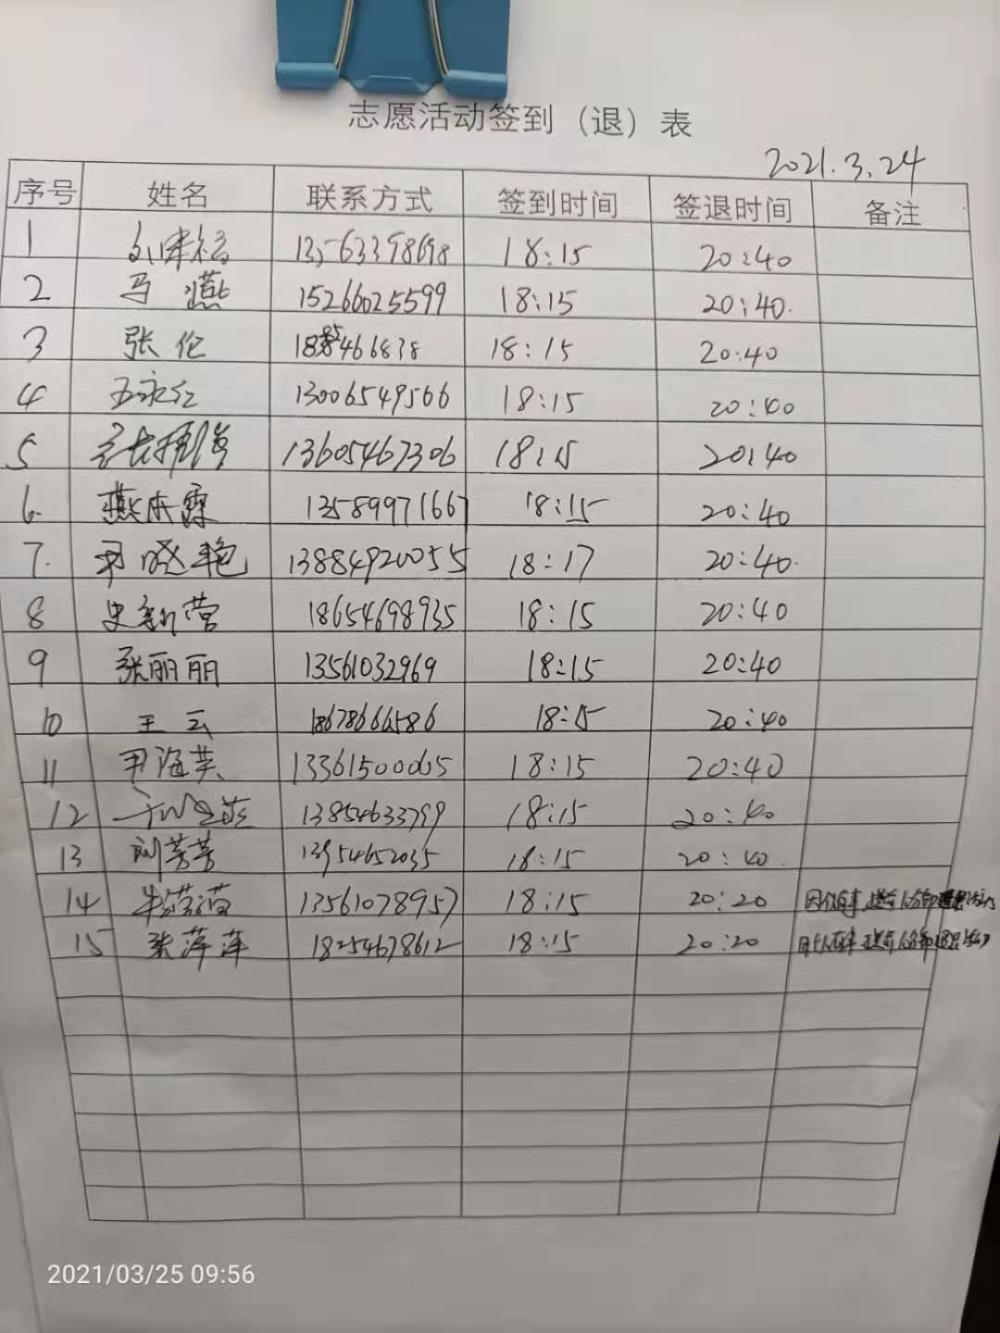 志愿活动签到（退）表
2021.3.24
序号 姓名 联系方式 签到时间 签退时间 备注
1 18:15 20:40
2 马燕 15266025599 18:15 20:40.
3 张伦 18:15 20:40
4 13006549566 18:15 20:40
5 13605467306 18:15 20:40
6. 燕杰霖 13589971667 18:15 20:40
7. 尹晓艳 13884920055 18:17 20:40.
8 史新营 18654698935 18:15 20:40
9 张丽丽 13561032969 18:15 20:40
10 王云 18678666586 18:15 20:40
11 尹海英 13361500065 18:15 20:40
12 13854633799 18:15 20:40
13 刘芳芳 13954652035 18:15 20:40.
14 13561078957 18:15 20:20
15 张萍萍 18254678612 18:15 20:20
2021/03/25 09:56